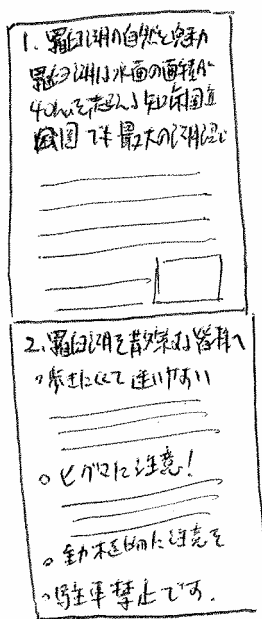 1. 羅臼湖の自然と魅力
羅臼湖は水面の面積が
40haを超える知床国立
公園でも最大の湖沼で
2. 羅臼湖を散策する皆様へ
○歩きにくくて迷いやすい
○ヒグマに注意!
○動植物に注意を
○駐車禁止です.